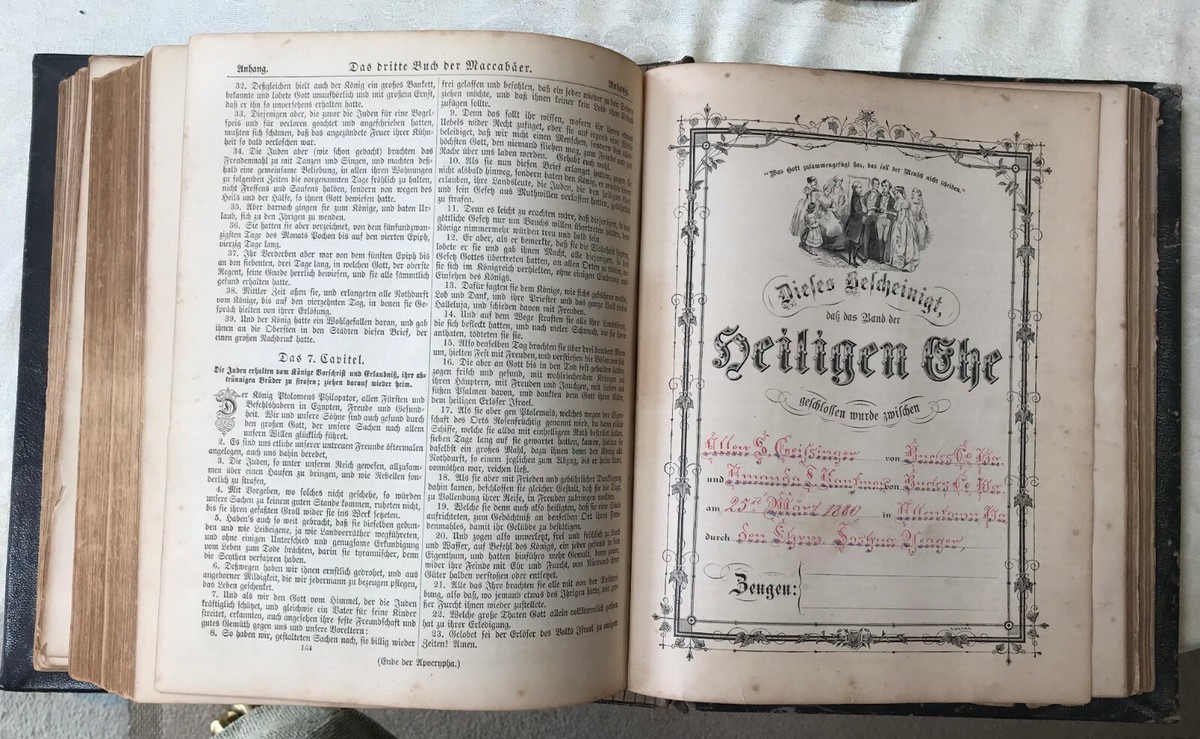 Anhang.
Das dritte Buch der Maccabäer.
Anhang.
32. Deßgleichen hielt auch der König ein großes Bankett,
bekannte und lobete Gott unaufhörlich und mit großem Ernst,
daß er ihn so unversehens erhalten hatte.
33. Diejenigen aber, die zuvor die Juden für eine Vogel-
speis und für verloren geachtet und angeschrieben hatten,
mußten sich schämen, daß das angezündete Feuer ihrer Kühn-
heit so bald verloschen war.
34. Die Juden aber (wie schon gedacht) brachten das
Freudenmahl zu mit Tanzen und Singen, und machten deß-
halb eine gemeinsame Beliebung, in allen ihren Wohnungen
zu folgenden Zeiten die vorgenannten Tage fröhlich zu halten,
nicht Fressens und Saufens halben, sondern von wegen des
Heils und der Hülfe, so ihnen Gott bewiesen hatte.
35. Aber darnach gingen sie zum Könige, und baten Ur-
laub, sich zu den Ihrigen zu wenden.
36. Sie hatten sie aber verzeichnet, von dem fünfundzwan-
zigsten Tage des Monats Pachon bis auf den vierten Epiph,
vierzig Tage lang.
37. Ihr Verderben aber war von dem fünften Epiph bis
an den siebenten, drei Tage lang, in welchen Gott, der oberste
Regent, seine Gnade herrlich bewiesen, und sie alle sämmtlich
gesund erhalten hatte.
38. Mittler Zeit aßen sie, und erlangeten alle Nothdurft
vom Könige, bis auf den vierzehnten Tag, in denen sie Ge-
spräch hielten von ihrer Erlösung.
39. Und der König hatte ein Wohlgefallen daran, und gab
ihnen an die Obersten in den Städten diesen Brief, der
einen großen Nachdruck hatte.
Das 7. Capitel.
Die Juden erhalten vom Könige Vorschrift und Erlaubniß, ihre ab-
trünnigen Brüder zu strafen; ziehen darauf wieder heim.
Der König Ptolomeus Philopator, allen Fürsten und
Befehlshabern in Egypten, Freude und Gesund-
heit. Wir und unsere Söhne sind auch gesund durch
den großen Gott, der unsere Sachen nach allem
unsern Willen glücklich führet.
2. Es sind uns etliche unserer untreuen Freunde öftermalen
angelegen, auch uns dahin beredet,
3. Die Juden, so unter unserm Reich gewesen, allzusam-
men über einen Haufen zu bringen, und wie Rebellen son-
derlich zu strafen,
4. Mit Vorgeben, wo solches nicht geschehe, so würden
unsere Sachen zu keinem guten Stande kommen, ruheten nicht,
bis sie ihren gefaßten Groll wider sie ins Werk setzeten.
5. Haben's auch so weit gebracht, daß sie dieselben gebun-
den und wie Leibeigene, ja wie Landverräther wegführeten,
und ohne einigen Unterschied und genugsame Erkundigung
vom Leben zum Tode brächten, darin sie tyrannischer, denn
die Scythen verfahren haben.
6. Deßwegen haben wir ihnen ernstlich gedrohet, und aus
angeborner Mildigkeit, die wir jedermann zu bezeugen pflegen,
das Leben geschenket.
7. Und als wir den Gott vom Himmel, der die Juden
kräftiglich schützet, und gleichwie ein Vater für seine Kinder
streitet, erkannten, auch angesehen ihre feste Freundschaft und
gutes Gemüth gegen uns und unsere Voreltern:
8. So haben wir, gestalteten Sachen nach, sie billig wieder
164
frei gelassen und befohlen, daß ein jeder wieder zu den Seinen
ziehen möchte, und daß ihnen keiner kein Leid ohne Ursach
zufügen sollte.
9. Denn das sollt ihr wissen, wofern ihr ihnen etwas
Uebels wider Recht zufüget, oder sie auf irgend eine Weise
beleidiget, daß wir nicht einen Menschen, sondern den aller-
höchsten Gott, den niemand fliehen mag, zum Feinde und zur
Rache über uns laden werden. Gehabt euch wohl.
10. Als sie nun diesen Brief erlanget hatten,
nicht alsbald hinweg, sondern baten den König, er möchte ihnen
erlauben, ihre Landsleute, die Juden, die den heiligen Gott
und sein Gesetz aus Muthwillen verlassen hatten, gebührlich
zu strafen.
11. Denn es leicht zu erachten wäre, daß diejenigen, so das
göttliche Gesetz nur um Bauchs willen übertreten hätten, dem
Könige nimmermehr würden treu und hold sein.
12. Er aber, als er bemerkte, daß sie die Wahrheit sagten,
lobete er sie und gab ihnen Macht, alle diejenigen, so das
Gesetz Gottes übertreten hätten, an allen Orten zu tödten, wo
sie sich im Königreich verhielten, ohne einigen Eintrag und
Einsehen des Königs.
13. Dafür sagten sie dem Könige, wie sichs gebühren wollte,
Lob und Dank, und ihre Priester und das ganze Volk sungen
Halleluja, und schieden davon mit Freuden.
14. Und auf dem Wege straften sie alle ihre Landsleute,
die sich befleckt hatten, und nach vieler Schmach, die sie ihnen
anthaten, tödteten sie sie.
15. Also denselben Tag brachten sie über drei hundert Mann
um, hielten Fest mit Freuden, und verstießen die Bösen von sich.
16. Die aber an Gott bis in den Tod fest gehalten hatten,
zogen frisch und gesund, mit wohlriechenden Kränzen auf
ihren Häuptern, mit Freuden und Jauchzen, mit Loben und
süßen Psalmen davon, und dankten dem Gott ihrer Väter,
dem heiligen Erlöser Israel.
17. Als sie aber gen Ptolemais, welches wegen der Eigen-
schaft des Orts Rosenfrüchtig genannt wird, da denn etliche
Schiffe, welche sie allda mit einhelligem Rath bestellet hatten,
sieben Tage lang auf sie gewartet hatten, kamen, hielten sie
daselbst ein großes Mahl, dazu ihnen denn der König alle
Nothdurft, so einem jeglichen zum Abzug, bis er heim kam,
vonnöthen war, reichen ließ.
18. Als sie aber mit Frieden und gebührlicher Danksagung
dahin kamen, beschlossen sie gleicher Gestalt, daß sie die Tage,
zu Vollendung ihrer Reise, in Freuden zubringen wollten.
19. Welche sie denn auch also heiligten, daß sie eine Säule
aufrichteten, zum Gedächtniß an denselben Ort ihres Freu-
denmahles, damit ihr Gelübde zu bestätigen.
20. Und zogen also unverletzt, frei und fröhlich zu Land
und Wasser, auf Befehl des Königs, ein jeder gesund in sein
Eigenthum, und hatten hinführo mehr Gewalt, denn zuvor,
wider ihre Feinde mit Ehr und Furcht, von Niemand ihrer
Güter halben verstoßen oder entsetzet.
21. Alle das Ihre brachten sie alle mit von der Anschrei-
bung, also daß, wo jemand etwas des Ihrigen hätte, mit gro-
ßer Furcht ihnen wieder zustellete.
22. Welche große Thaten Gott allein vollkömmlich gethan
hat zu ihrer Erledigung.
23. Gelobet sei der Erlöser des Volks Israel zu ewigen
Zeiten! Amen.
(Ende der Apocrypha.)
"Was Gott zusammengefügt hat, das soll der Mensch nicht scheiden."
Dieses bescheinigt,
daß das Band der
Heiligen Ehe
geschlossen wurde zwischen
Allen S. Geissinger von Bucks Co Pa.
und Amanda F Kaufman von Bucks Co Pa
am 25st März 1880 in Allentown Pa
durch den Ehrw. Joshua Yeager,
Zeugen: